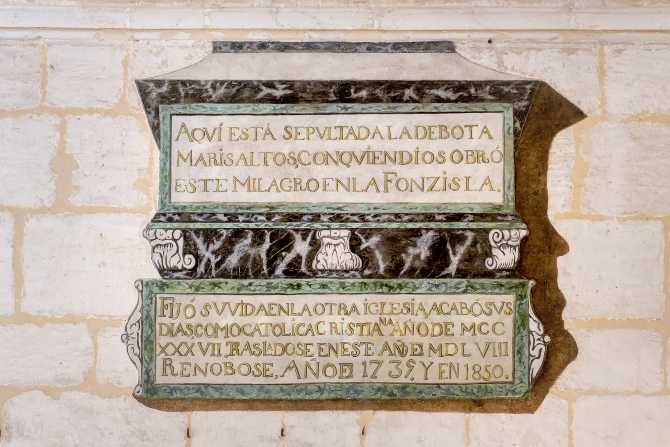 AQVI ESTÁ SEPVLTADA LA DEBOTA
MARISALTOS, CON QVIEN DIOS OBRÓ
ESTE MILAGRO EN LA FONZISLA.
FIJÓ SV VIDA EN LA OTRA IGLESIA, ACABÓ SVS
DIAS COMO CATOLICA CRISTIANA AÑO DE MCC
XXXVII, TRASLADOSE EN ESTE AÑO DE MDLVIII
RENOBOSE, AÑO DE 1739, Y EN 1850.